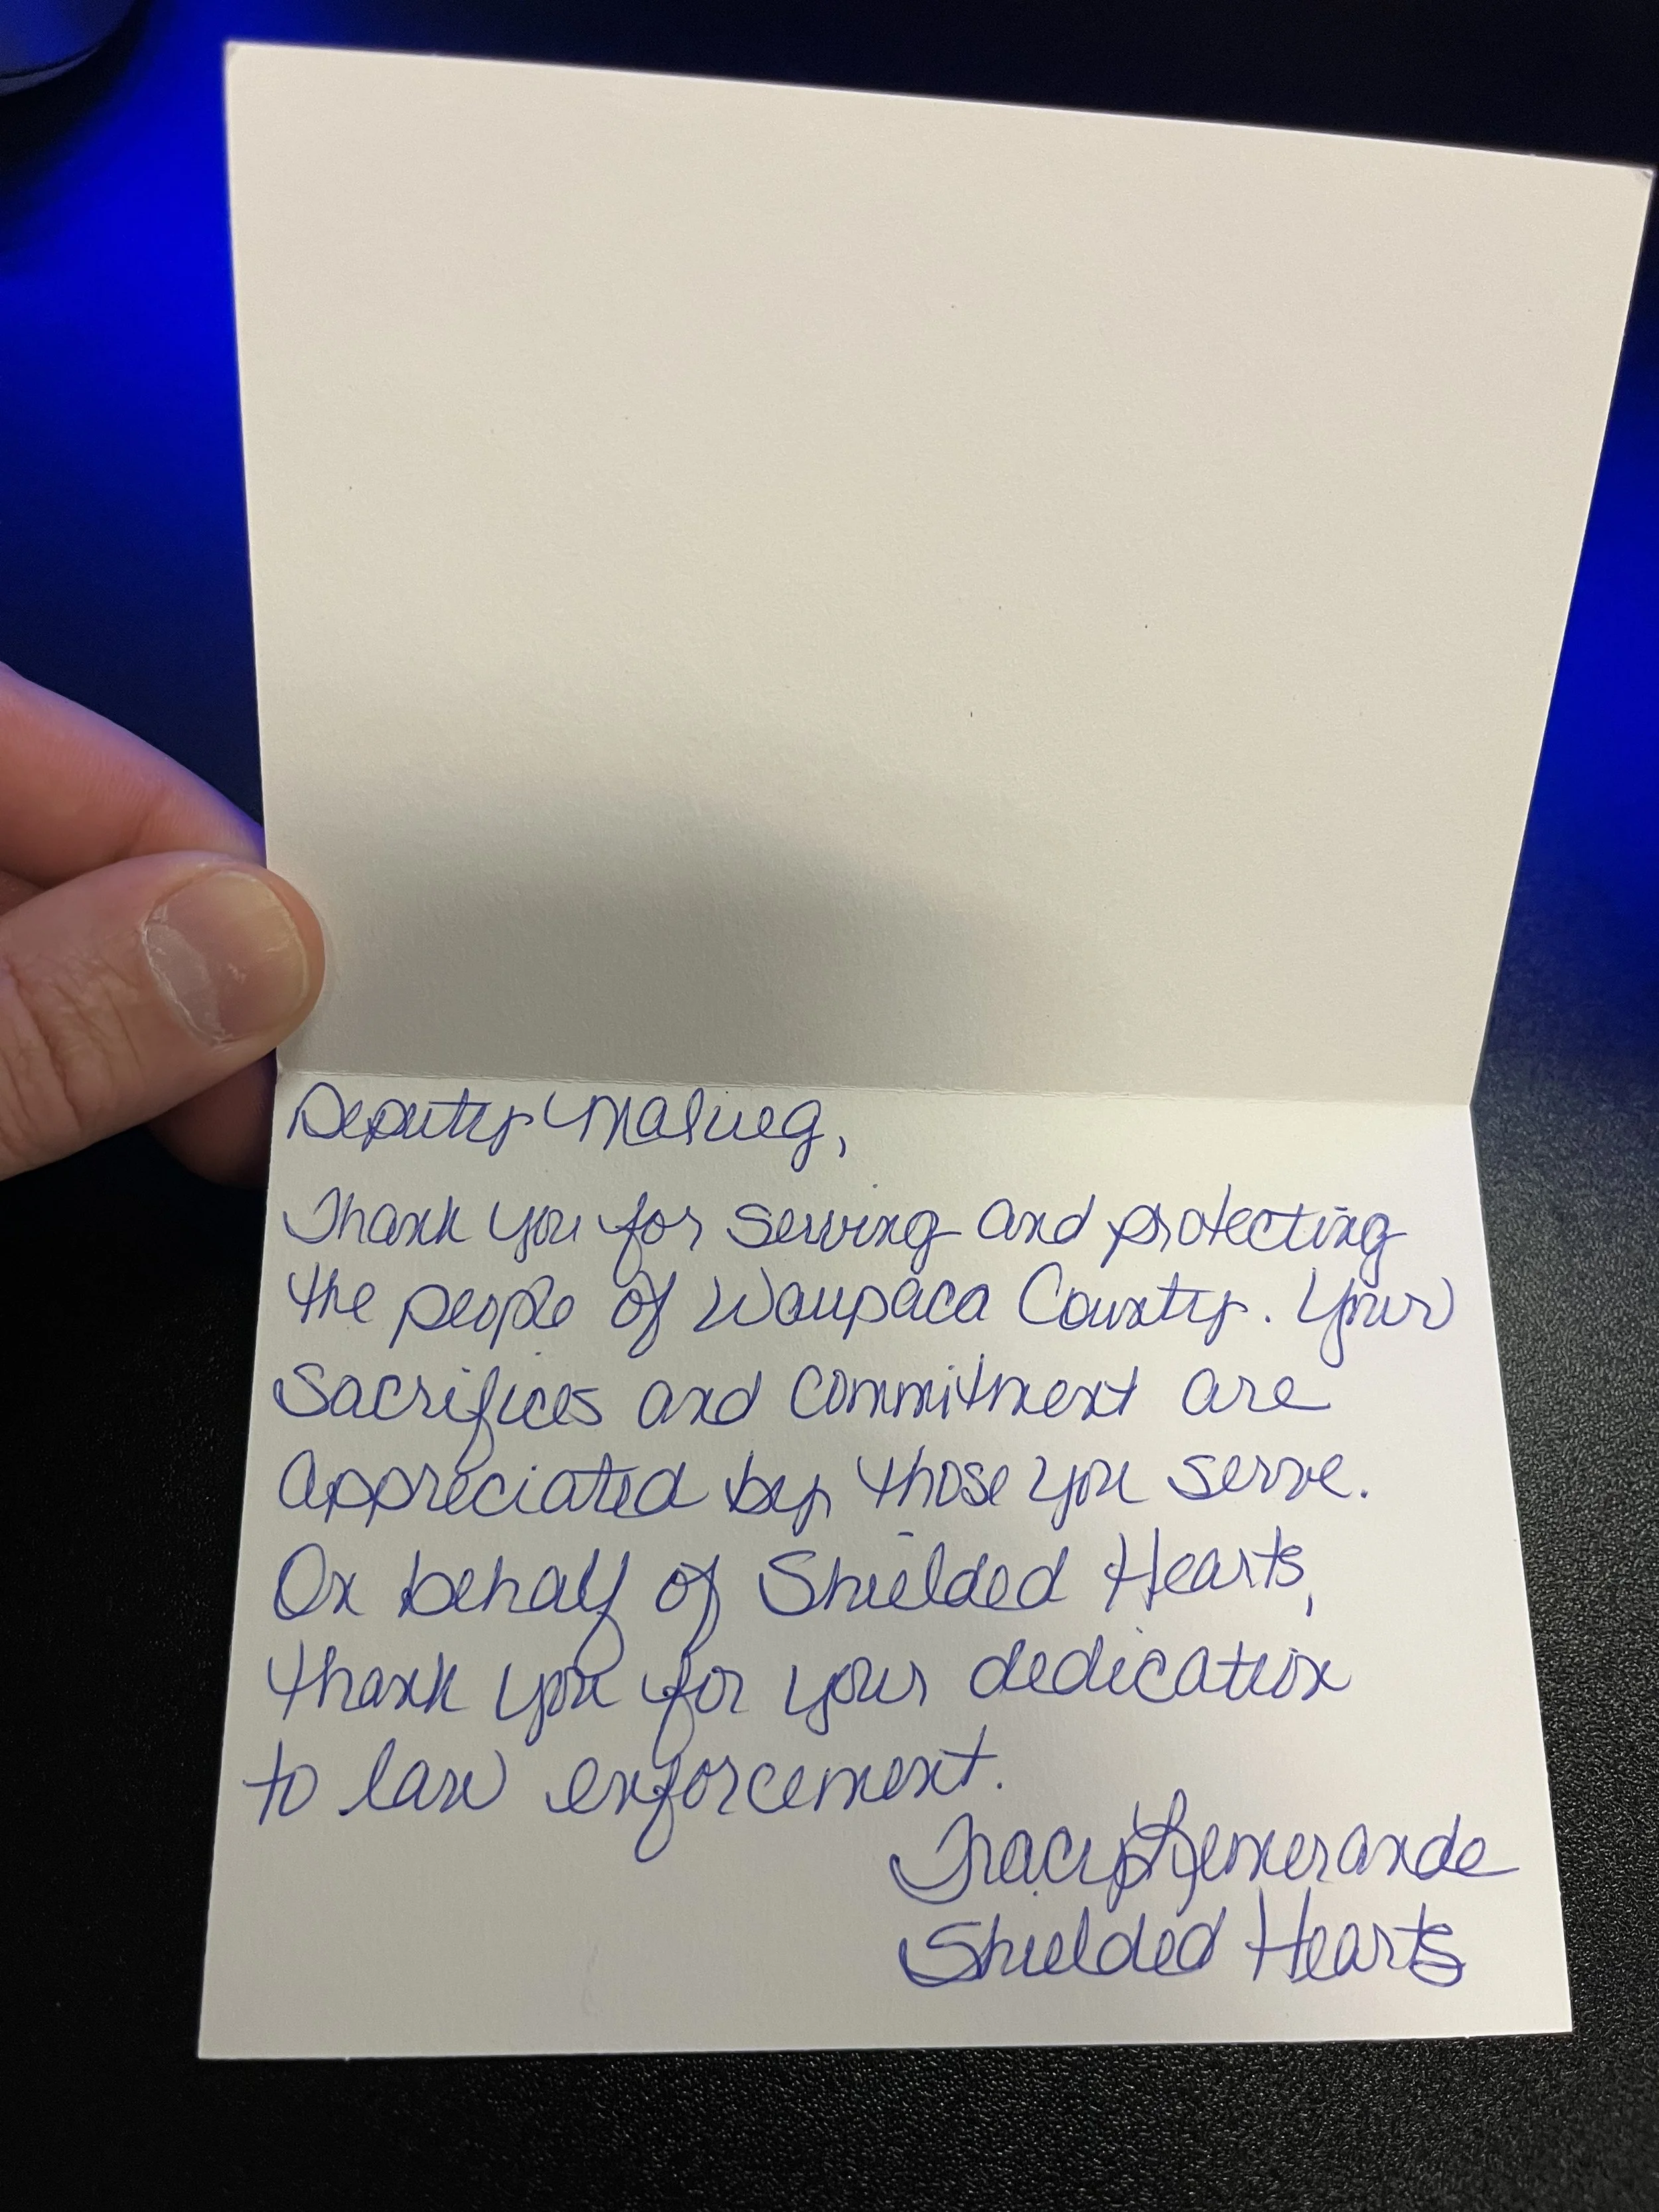 Deputy Malueg,
Thank you for serving and protecting
the people of Waupaca County. Your
Sacrifices and commitment are
appreciated by those you serve.
On behalf of Shielded Hearts,
thank you for your dedication
to law enforcement.
Tracy Lemerande
Shielded Hearts